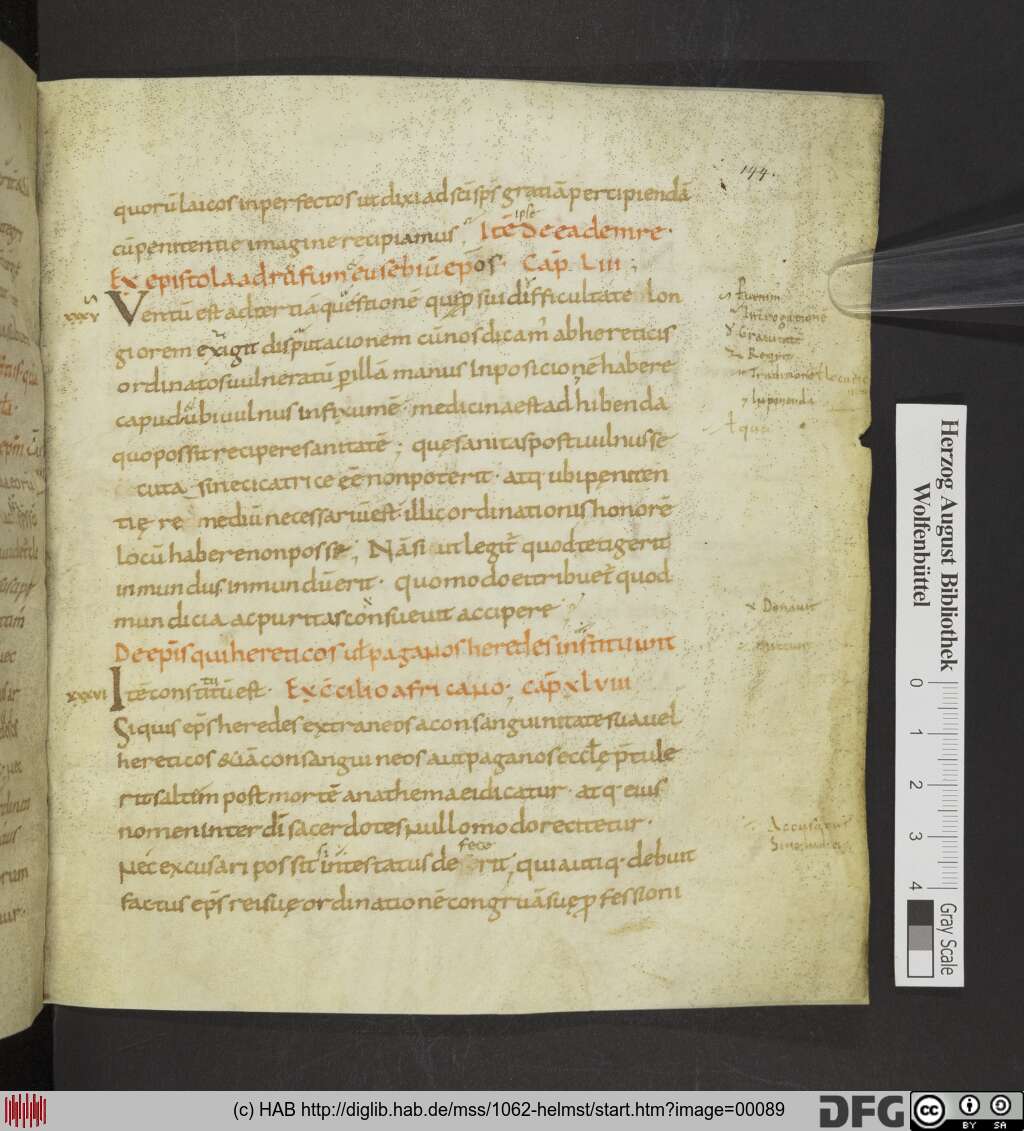 144.
quorū laicos inperfectos ut dixi ad sc̄i sp̄s gratiā percipiendā
cū penitentie imagine recipiamus; Itē ipse De eadem re·
Ex epistola ad rufum eusebiū ep̄os· Cap̄ LIII;
XXXV Ventū est ad tertiā questionē que p sui difficultate lon
giorem exigit disputacionem cū nos dicam̄ ab hereticis
ordinatos vulneratū p illā manus inposicionē habere
caput dū ubi vulnus infixum ē· medicina est adhibenda
quo possit recipere sanitatē; quę sanitas post vulnus se
cuta sine cicatrice eē non poterit· atq ubi peniten
tię remediū necessariū est· illic ordinationis honorē
locū habere non posse; Nā si ut legit̄ quod tetigerit
inmundus inmundū erit· quomodo ei tribuet̄ quod
mundicia ac puritas consuevit accipere
De ep̄is qui hereticos ut paganos heredes instituunt
XXXVI Itē constitutū est· Ex ccilio africano; cap̄ XLVIII
Si quis ep̄s heredes extraneos a consanguinitate sua vel
hereticos & iā consanguineos aut paganos ecclę p̄tule
rit saltem post mortē anathema ei dicatur· atq eius
nomen inter dī sacerdotes nullo modo recitetur·
nec excusari possit si intestatus de feco rit, qui autiq· debuit
factus ep̄s rei suę ordinationē congruā suę pfessioni
Furnum
Intrrogationē
Gravitatē
Require
Traditione
Inponenda
qua
Donavit
Accusatur
Herzog August Bibliothek
Wolfenbüttel
0 1 2 3 4
Gray Scale
(c) HAB http://diglib.hab.de/mss/1062-helmst/start.htm?image=00089
DFG
cc BY SA